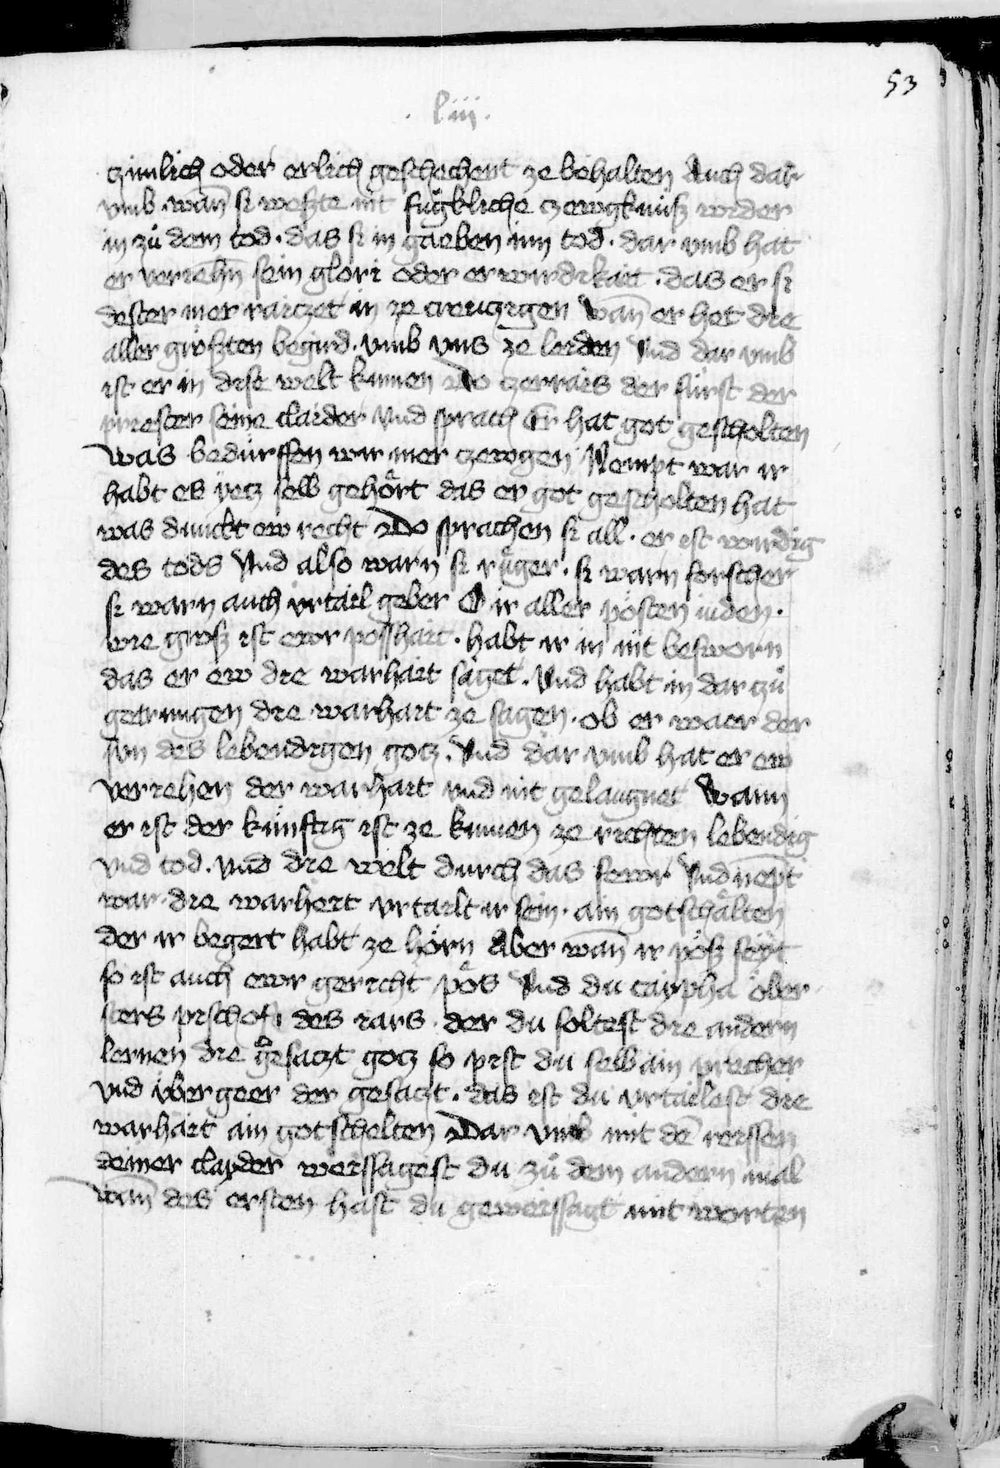 53
. liii .
czimlich oder erlich geschechent ze behalten Auch dar
vmb wan̄ si westte nit fügkliche czewgknüsz wider
in zů dem tod · das si in gaeben im tod · dar vmb hat
er veriehn̄ sein glori oder erwirdikait · das er si
dester mer raiczet in ze creuczigen Wan̄ er het die
aller grösten begird · vmb vns ze leiden Vnd dar vmb
ist er in dise welt kumen Do czerrais der fürst der
priester seine claider vnd sprach Er hat got gescholten
Was bedürffen wir mer czewgen Nempt war ir
habt es yecz selb gehört das er got gescholten hat
was dunckt ew recht Do sprachen si all · er ist wirdig
des tods Vnd also warn si rüger · si warn forscher
si warn auch vrtail geber O ir aller pösten iuden ·
wie grosz ist ewr posshait · habt ir in nit besworn
das er ew die warhait saget . Vnd habt in dar zů
getrungen die warhait ze sagen · ob er waer der
sun des lebendigen gocz . Vnd dar vmb hat er ew
veriehen der warhait vnd nit gelaugnet Wann
er ist der künftig ist ze kumen ze richten lebendig
vnd tod . vnd die welt durch das fewr Vnd nēpt
war · die warheit vrtailt ir sein · ain gotschälten
der ir begert habt ze hörn Aber wan̄ ir pösz seyt
so ist auch ewr gericht pös Vnd du caypha öber
sters pischof des iars · der du soltest die andern
lernen die gesaczt gocz so pist du selb ain precher
vnd vbergeer der gesaczt · das ist du vrtailest die
warhait ain gotschelten Dar vmb mit dē reissen
deiner clayder weissagest du zů dem andern mal
wan̄ des ersten hast du geweissagt mit worten